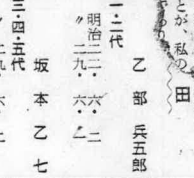 とが 私の田
一・二代
乙部兵五郎
明治二二・六・二
〃二九・六・二
三・四・五代
坂本乙七
〃二九・六・二